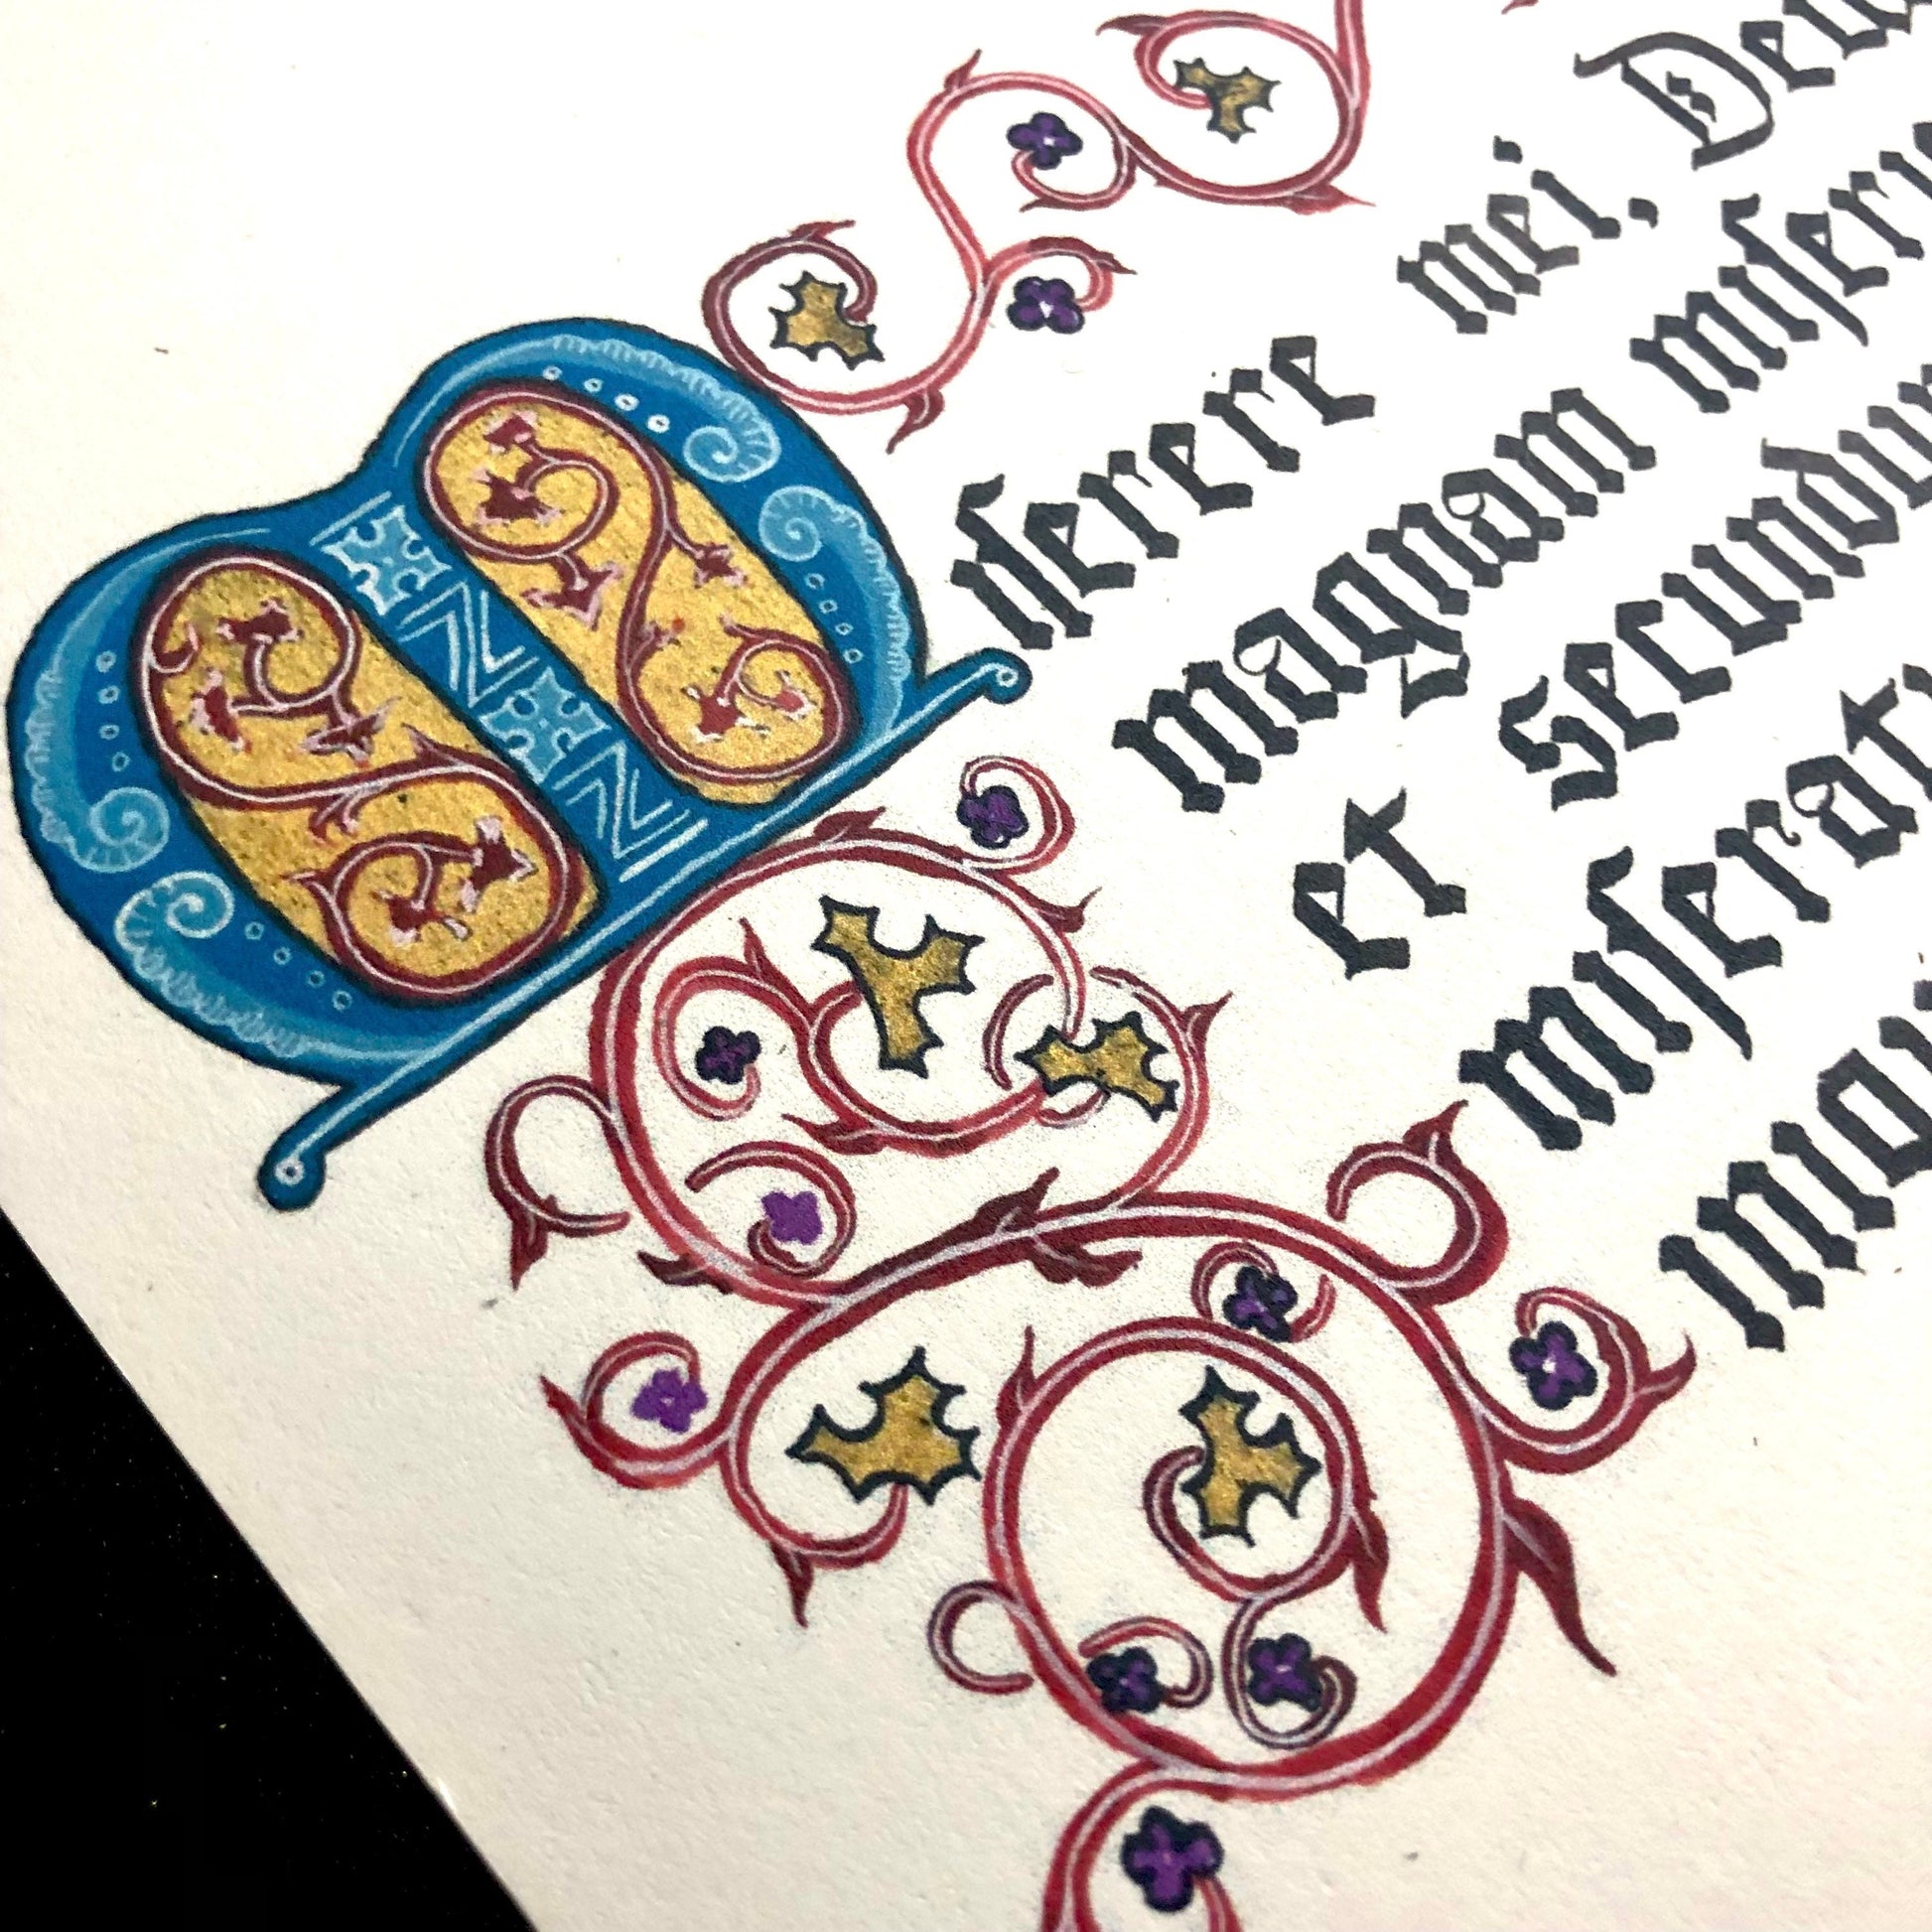 Miſerere mei, Deu
magnam miſeri
et Secundu
miſerat
iniq